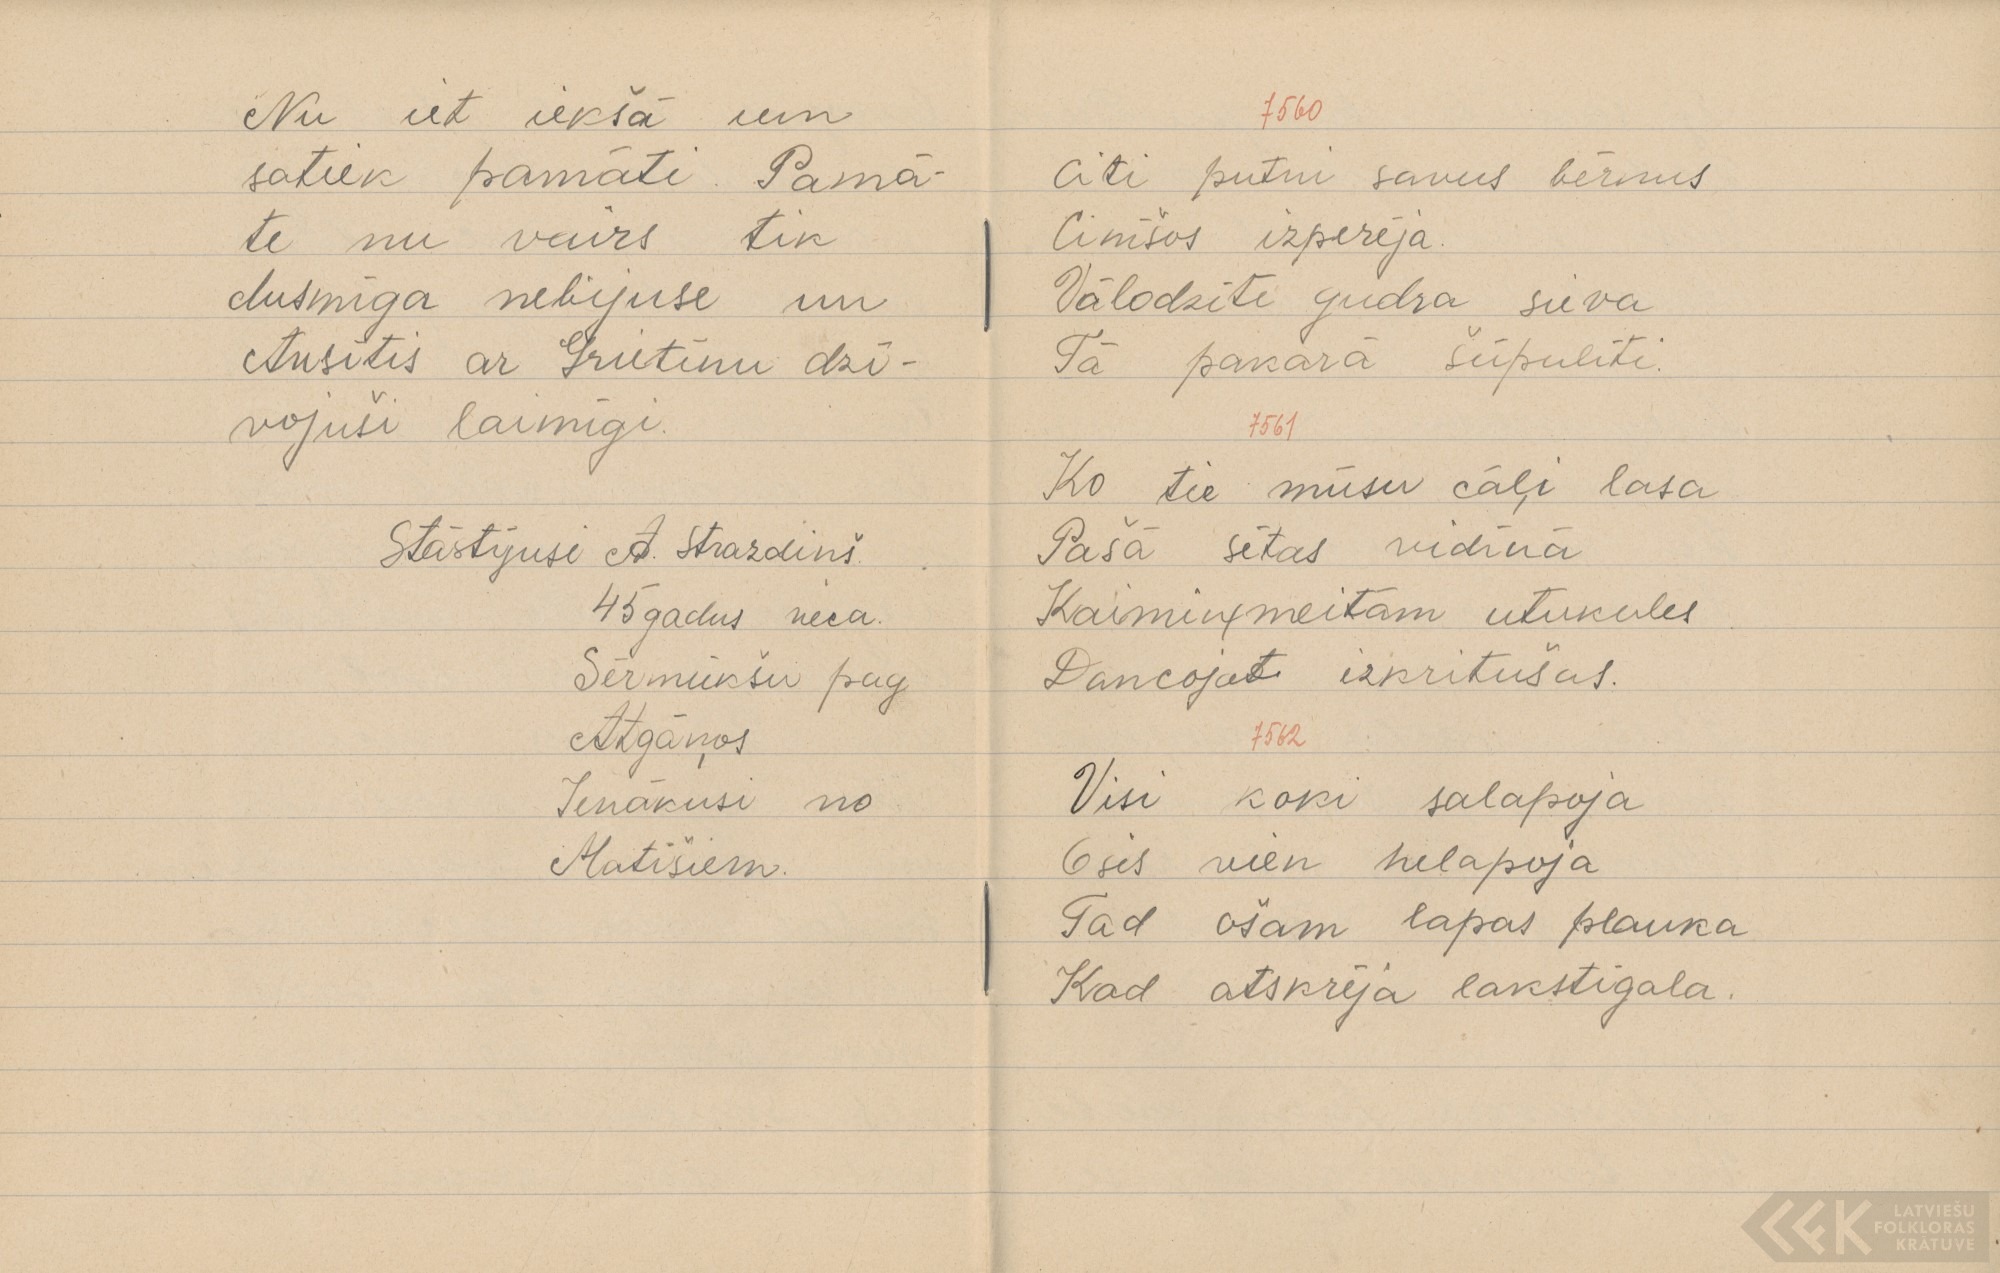 Nu iet iekšā un
satiek pamāti. Pamā-
te nu vairs tik
dusmīga nebijuse un
Ansītis ar Grietiņu dzī-
vojuši laimīgi.
Stāstījusi A. Strazdiņš.
45 gadus veca.
Sērmūkšu pag
Atgāņos
Ienākusi no
Matīšiem.
7560
Citi putni savus bērnus
Ciņīšos izperēja.
Vālodzīte gudra sieva
Tā pakarā šūpulīti.
7561
Ko tie mūsu cāļi lasa
Pašā sētas vidiņā
Kaimiņmeitām utukules
Dancojot izkritušas.
7562
Visi koki salapoja
Osis vien nelapoja
Tad ošam lapas plauka
Kad atskrēja lakstīgala.
LATVIEŠU
FOLKLORAS
KRĀTUVE